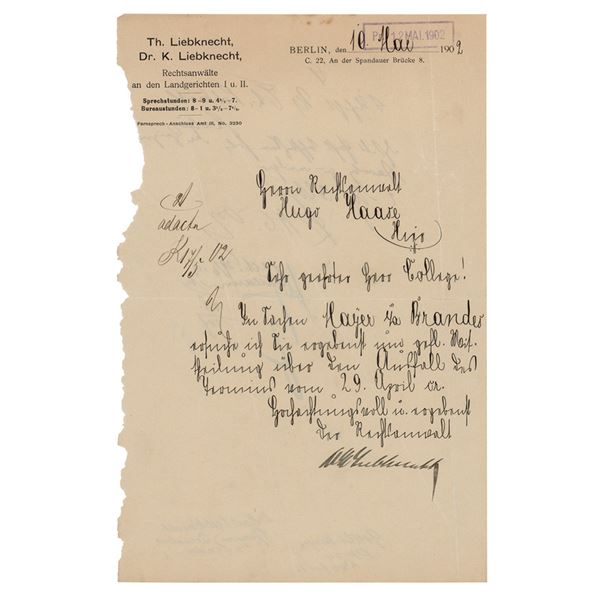 Th. Liebknecht,
Dr. K. Liebknecht,
Rechtsanwälte
an den Landgerichten I u. II.
Sprechstunden: 8–9 u. 4½–7.
Bureaustunden: 8–1 u. 3½–7½.
Fernsprech-Anschluss Amt III, No. 3230
BERLIN, den 10. Mai 1902
12. MAI. 1902
C. 22, An der Spandauer Brücke 8.
Herrn Rechtsanwalt
Hugo Haase
ad acta
K 17/5 02
Sehr geehrter Herr College!
In Sachen Mayer c/a Brandes
ersuche ich Sie ergebenst um gefl. Mit-
theilung über den Ausfall des
Termins vom 29. April cr.
Hochachtungsvoll u. ergebenst
Der Rechtsanwalt
Liebknecht